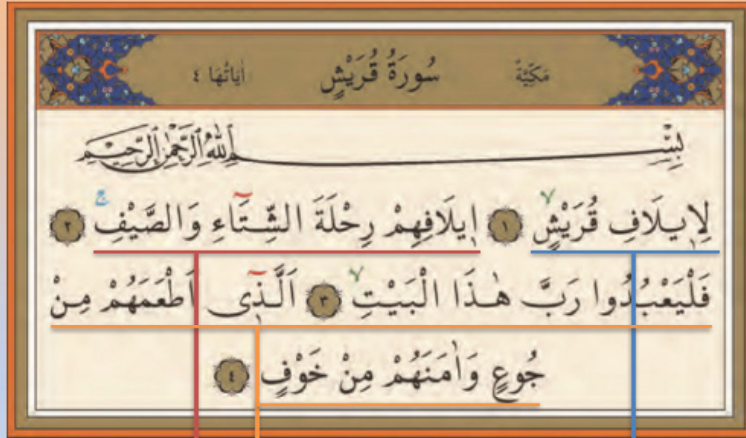 مَكِّيَّةٌ سُورَةُ قُرَيْشٍ اٰيَاتُهَا ٤
بِسْمِ اللّٰهِ الرَّحْمٰنِ الرَّحِيمِ
لِا۪يلَافِ قُرَيْشٍۙ ﴿١﴾ ا۪يلَافِهِمْ رِحْلَةَ الشِّتَٓاءِ وَالصَّيْفِۚ ﴿٢﴾
فَلْيَعْبُدُوا رَبَّ هٰذَا الْبَيْتِۙ ﴿٣﴾ اَلَّذ۪ٓى اَطْعَمَهُمْ مِنْ
جُوعٍ وَاٰمَنَهُمْ مِنْ خَوْفٍ ﴿٤﴾